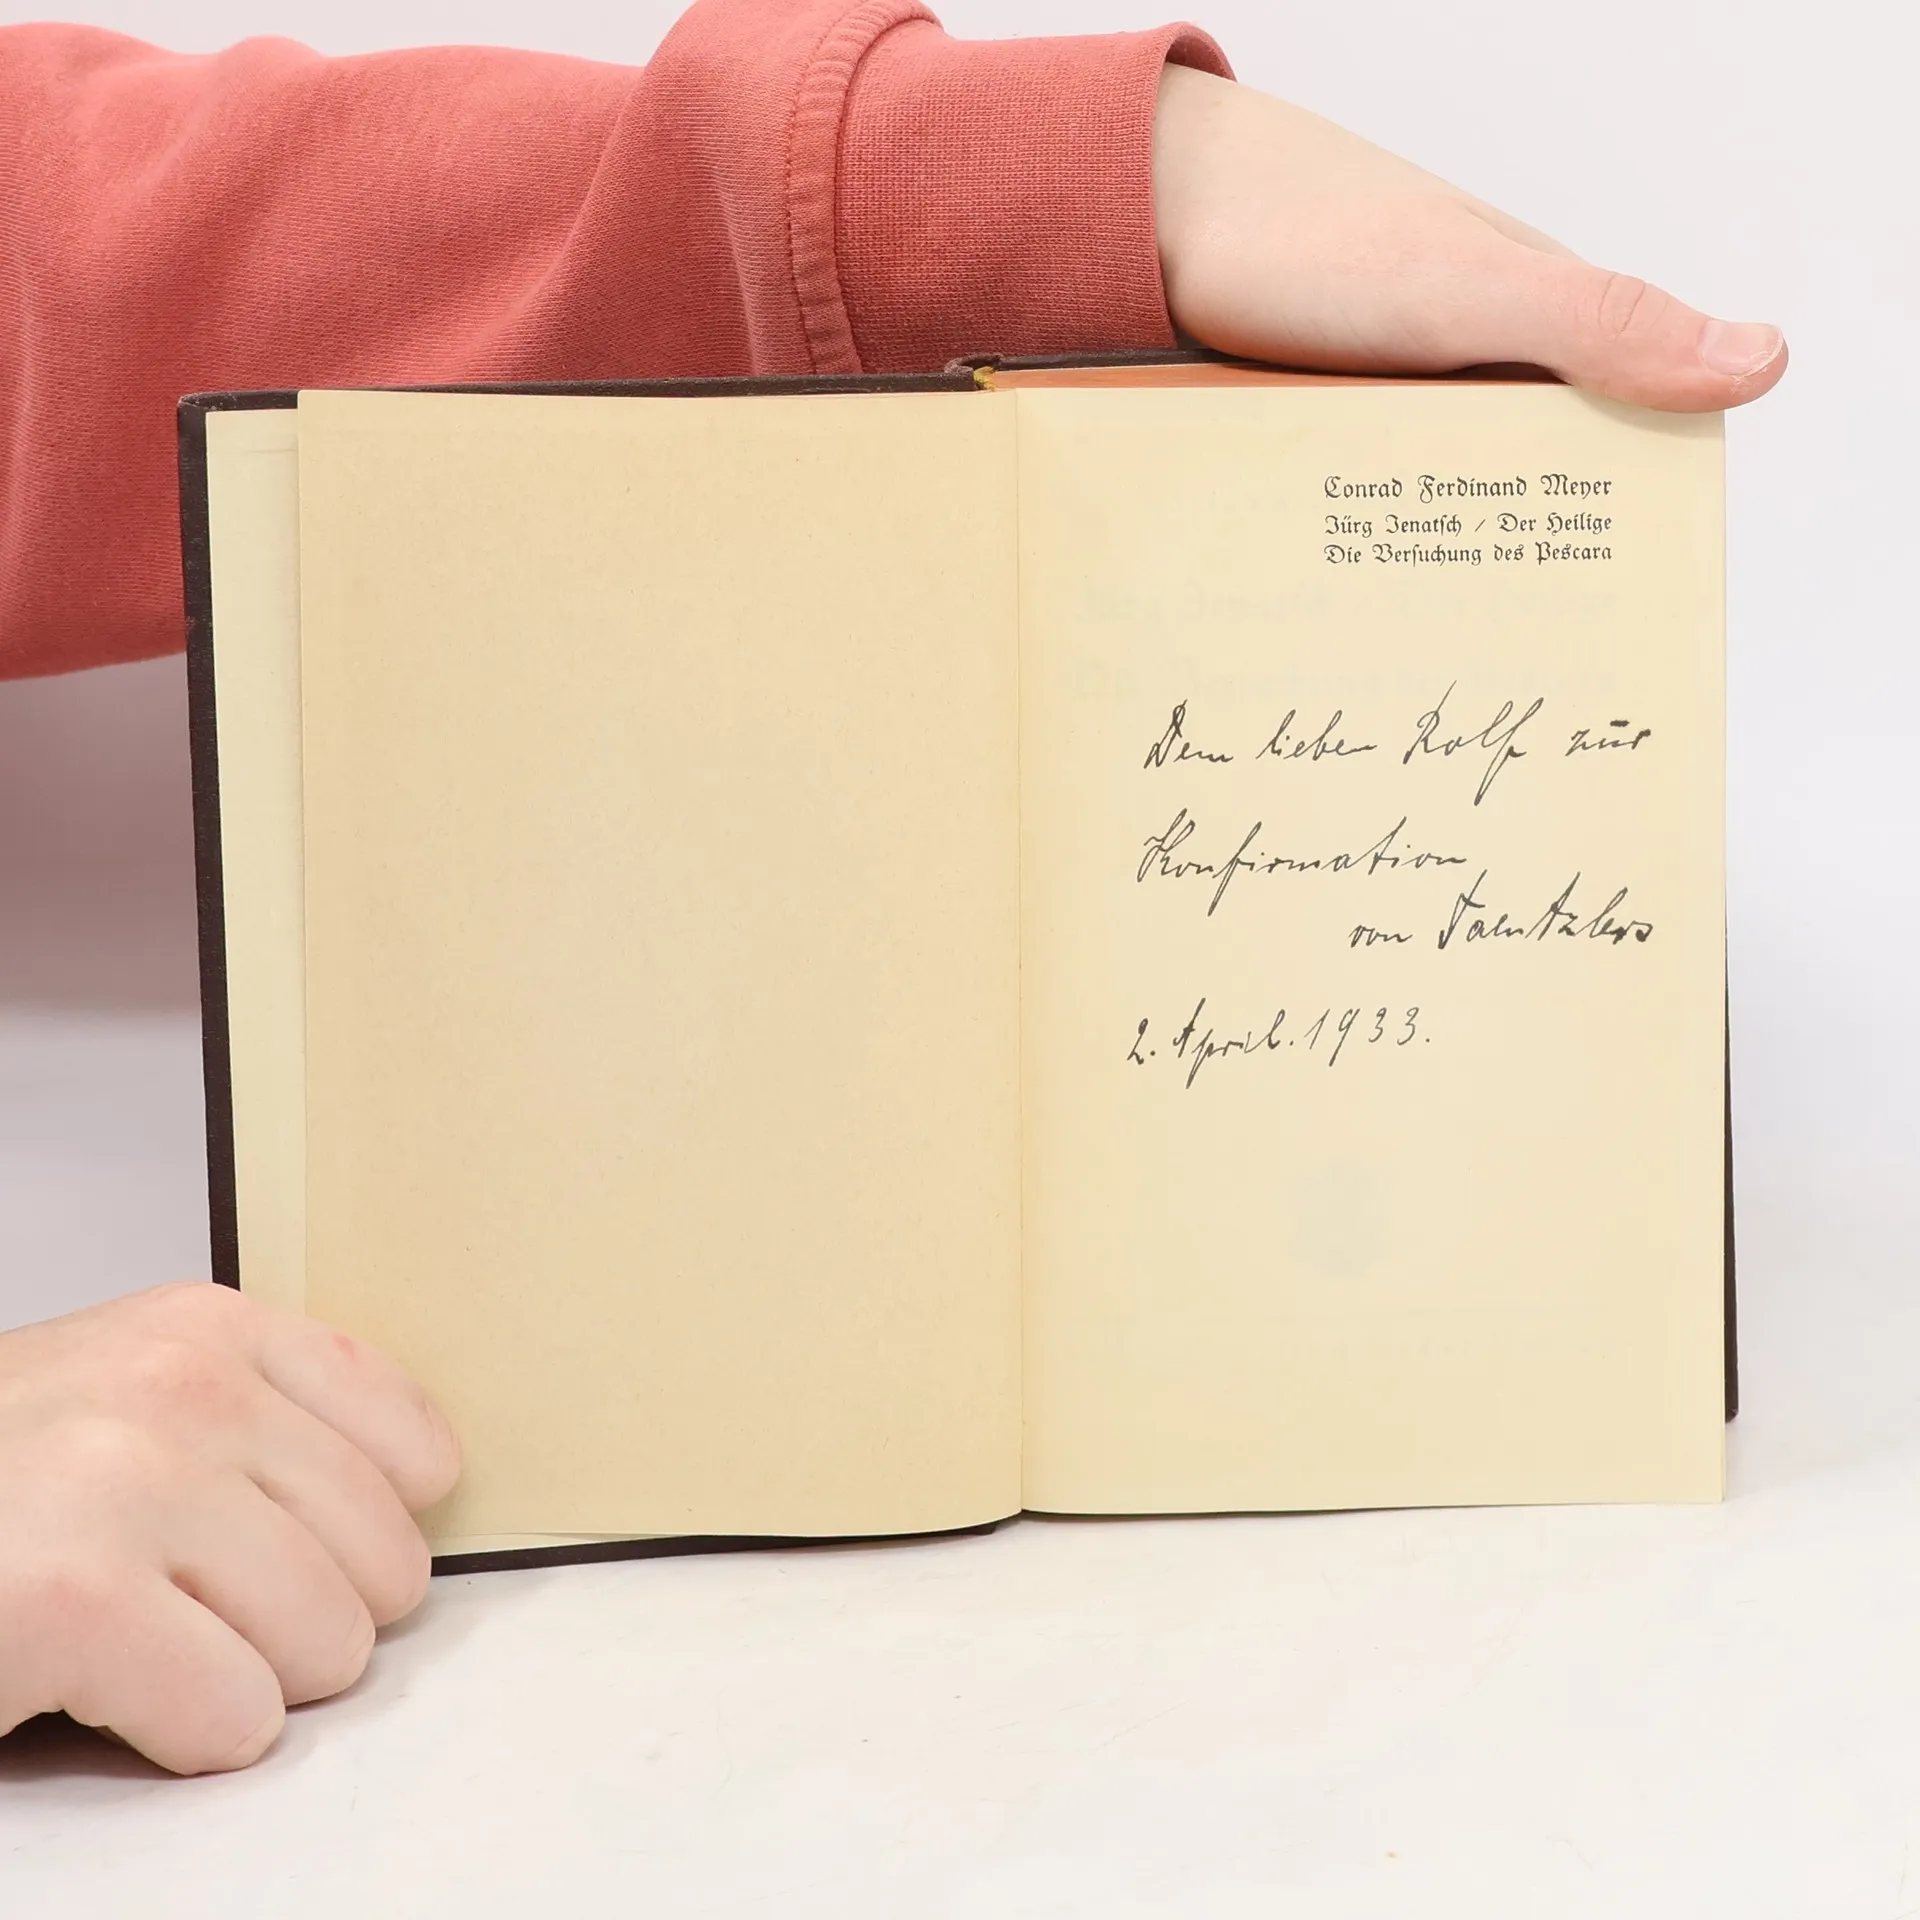 Conrad Ferdinand Meyer
Jürg Jenatsch / Der Heilige
Die Versuchung des Pescara
Dem lieben Rolf zur
Konfirmation
von Taentzlers
2. April. 1933.